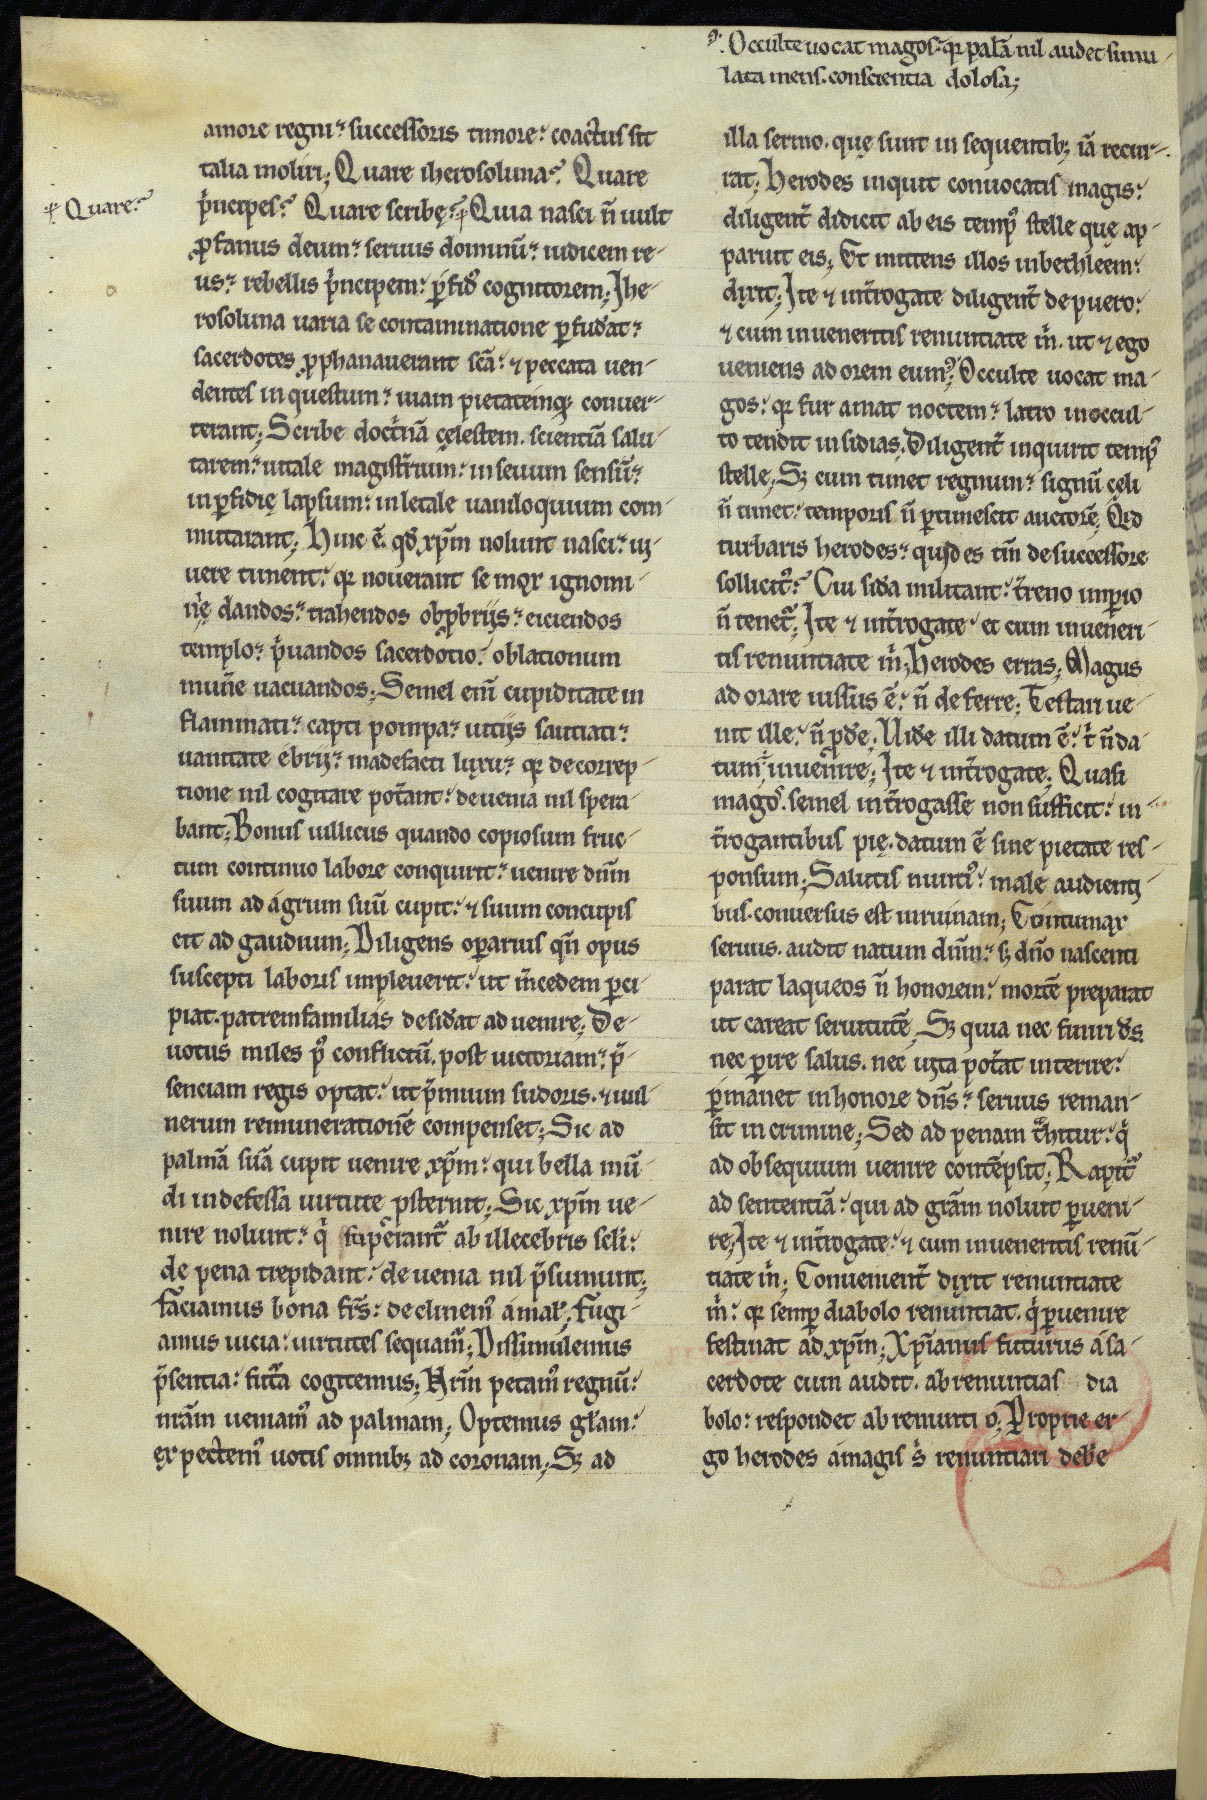 Occulte uocat magos. qr palā nil audet simu-
lata mens. conscientia dolosa;
amore regni? successoris timore? coactus sit
talia moliri; Quare iherosolima? Quare
Quare?
p̄ncipes? Quare scribę? Quia nasci n̄ uult
ꝓfanus deum? seruus dominū? iudicem re-
us? rebellis p̄ncipem? ꝑfidꝰ cognitorem; Ihe
rosolima uaria se contaminatione ꝑfudat?
sacerdotes ꝓphanauerant scā? ⁊ peccata uen-
dentes in questum? uiam pietatemqꝫ conuer-
terant; Scribe doctnā cęlestem. scientiā salu-
tarem? uitale magistrium? in seuum sensū?
in ꝑfidię lapsum? in letale uaniloquium com-
mutarant; Hinc ē qd̄ xp̄m nolunt nasci? ue
uere timent? qr nouerant se mox ignomi-
n̄ę dandos? trahendos obꝓbrijs? eiciendos
templo? p̄uandos sacerdotio? oblationum
mun̄e uacuandos; Semel enī cupiditate in
flammati? capti pompa? uitijs sautiati?
uanitate ebrij? madefacti luxu? qr de correp-
tione nil cogitare pot̄ant? de uenia nil spera
bant; Bonus uillicus quando copiosum fruc
tum continuo labore conquirit? uenire dn̄m
suum ad agrum suū cupit? ⁊ suum concupis
cit ad gaudium; Diligens oꝑarius qn̄ opus
suscepti laboris impleuerit? ut m̄cedem ꝑci-
piat. patremfamilias desid̄at aduenire; De-
uotus miles pꝰ conflictū. post uictoriam? p̄-
senciam regis optat? ut p̄mium sudoris. ⁊ uul
nerum remunerationē compenset; Sic ad
palmā suā cupit uenire xp̄m? qui bella mū-
di indefessa uirtute ꝓsternit; Sic xp̄m ue-
nire nolunt? qͥ suꝑant̄ ab illecebris scli?
de pena trepidant? de uenia nil p̄sumunt;
faciamus bona fr̄s? declinemꝰ a malꝰ; fugi-
amus uicia? uirtutes sequam̄; Dissimulemus
p̄sentia? fut̄a cogitemus; Xr̄m petamꝰ regnū?
nrām ueniamꝰ ad palmam; Optemus glām?
expectemꝰ uotis omnibꝫ ad coronam; Sꝫ ad
illa sermo. quę sunt in sequentibꝫ iā recur-
rat; Herodes inquit conuocatis magis?
diligent̄ didicit ab eis tempꝰ stelle quę ap-
paruit eis; Et mittens illos in bethleem?
dixit; Ite ⁊ int̄rogate diligent̄ de puero?
⁊ cum inueneritis renuntiate m̄. ut ⁊ ego
ueniens adorem eum; Occulte uocat ma-
gos? qr fur amat noctem? latro in occul-
to tendit insidias; Diligent̄ inquirit tempꝰ
stelle; Sꝫ cum timet regnum? signū cęli
n̄ timet? temporis n̄ ꝑtimescit auctorē; Qͥd
turbaris herodes? quid es tm̄ de successore
sollicitꝰ? Cui sid̄a militant? t̄reno imꝑio
n̄ tenet̄; Ite ⁊ int̄rogate? et cum inueneri-
tis renuntiate m̄; Herodes erras; Magus
adorare iussus ē? n̄ deferre; Testari ue-
nit ille? n̄ ꝓd̄e; Uid̄e illi datum ē? t̄ n̄ da
tum inuenire; Ite ⁊ int̄rogate; Quasi
magoꝰ. semel int̄rogasse non sufficit? in-
t̄rogantibus pię. datum ē sine pietate res-
ponsum; Salutis nuntiꝰ? male audienti-
bus. conuersus est in ruinam; Contumax
seruus. audit natum dn̄m? sꝫ dn̄o nascenti
parat laqueos n̄ honorem? mortē preparat
ut careat seruitutē; Sꝫ quia nec finiri d̄s.
nec ꝑire salus. nec uita pot̄at interire?
ꝑmanet in honore dn̄s? seruus reman-
sit in crimine; Sed ad penam t̄hitur? qͥ
ad obsequium uenire contēpsit; Rapit̄
ad sententiā? qui ad grām noluit ꝑueni-
re; Ite ⁊ int̄rogate? ⁊ cum inueneritis renū-
tiate m̄; Conuenient̄ dixit renuntiate
m̄? qr semꝑ diabolo renuntiat. qͥ ꝑuenire
festinat ad xp̄m; Xp̄ianus futurus a sa-
cerdote cum audit. abrenuntias dia
bolo? respondet abrenuntio; Proprie er-
go herodes a magis sͥ renuntiari debe